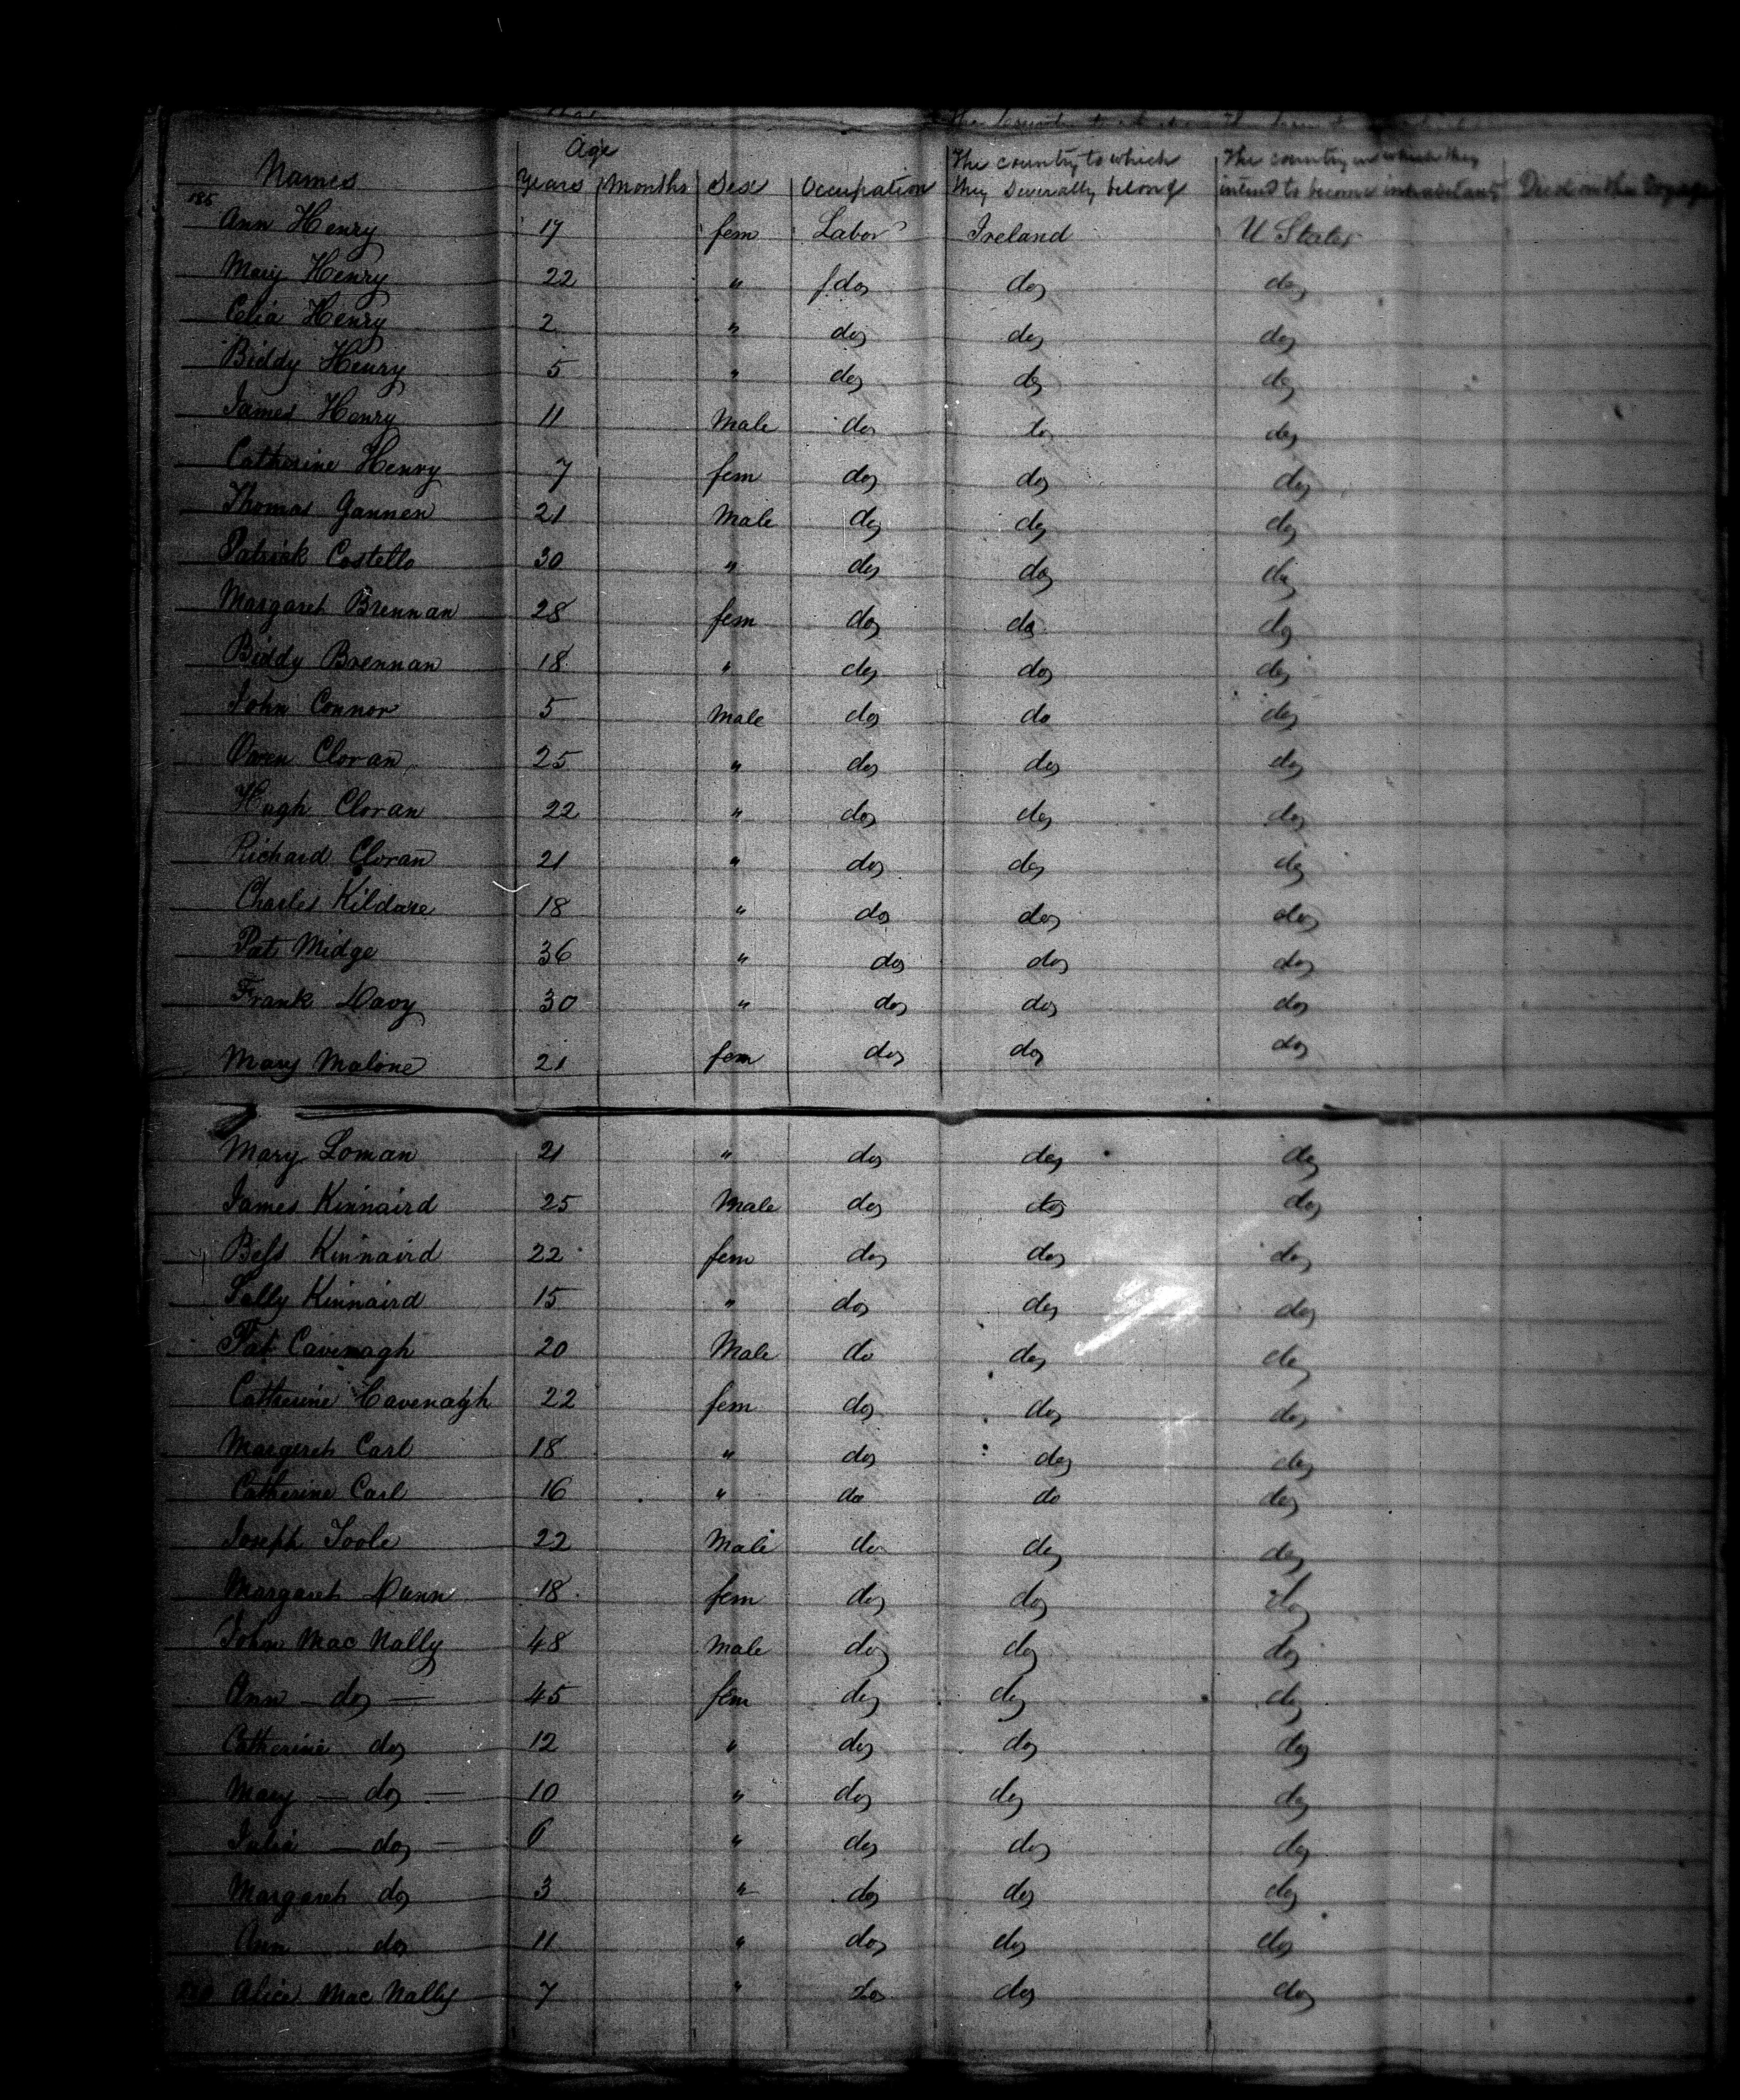 Age
Names Years Months Sex Occupation The country to which they Severally belong The country in which they intend to become inhabitants Died on the Voyage
185
Ann Henry 17 fem Labor Ireland U States
Mary Henry 22 " do do do
Celia Henry 2 " do do do
Biddy Henry 5 " do do do
James Henry 11 Male do do do
Catherine Henry 7 fem do do do
Thomas Gannen 21 Male do do do
Patrick Costello 30 " do do do
Margaret Brennan 28 fem do do do
Biddy Brennan 18 " do do do
John Connor 5 Male do do do
Owen Cloran 25 " do do do
Hugh Cloran 22 " do do do
Richard Cloran 21 " do do do
Charles Kildare 18 " do do do
Pat Midge 36 " do do do
Frank Davy 30 " do do do
Mary Malone 21 fem do do do
Mary Loman 21 " do do do
James Kinnaird 25 Male do do do
Bess Kinnaird 22 fem do do do
Sally Kinnaird 15 " do do do
Pat Cavenagh 20 Male do do do
Catherine Cavenagh 22 fem do do do
Margaret Carl 18 " do do do
Catherine Carl 16 " do do do
Joseph Toole 22 Male do do do
Margaret Dunn 18 fem do do do
John Mac Nally 48 Male do do do
Ann — do — 45 fem do do do
Catherine do 12 " do do do
Mary — do — 10 " do do do
Julia — do — 6 " do do do
Margaret do 3 " do do do
Ann do 11 " do do do
Alice Mac Nally 7 " do do do